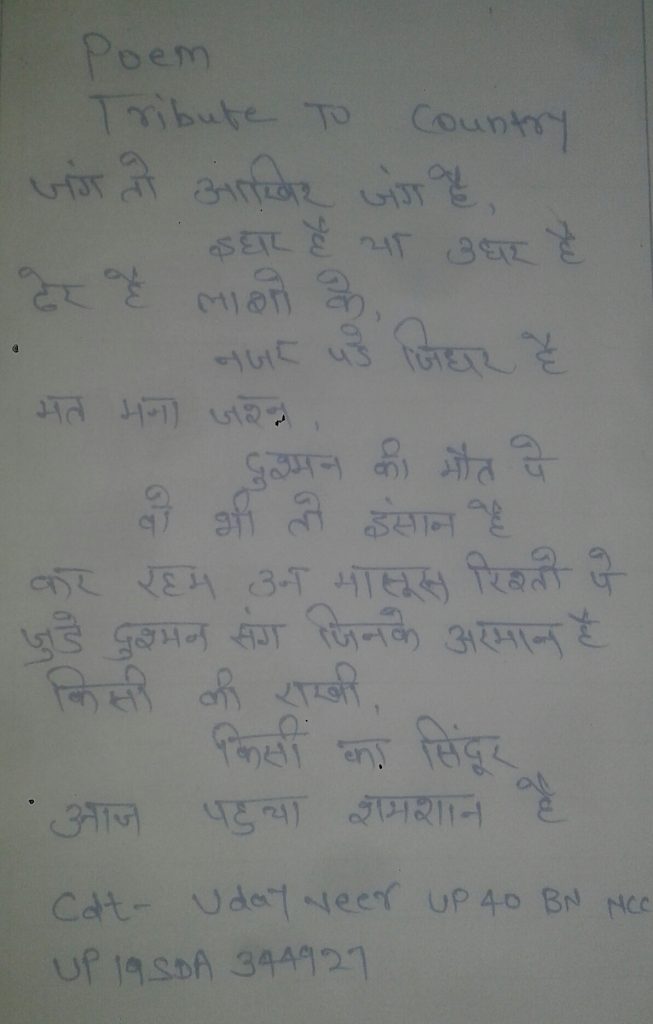 Poem
Tribute To Country
जंग तो आखिर जंग है,
इधर है या उधर है
ढेर है लाशो के,
नजर पडे जिधर है
मत मना जश्न,
दुश्मन की मौत पे
वो भी तो इंसान है
कर रहम उन मासूस रिश्तो पे
जुडे दुश्मन संग जिनके अरमान है
किसी की राखी,
किसी का सिंदूर
आज पहुचा शमशान है
Cdt- Uday veer UP 40 BN NCC
UP19SDA 344927